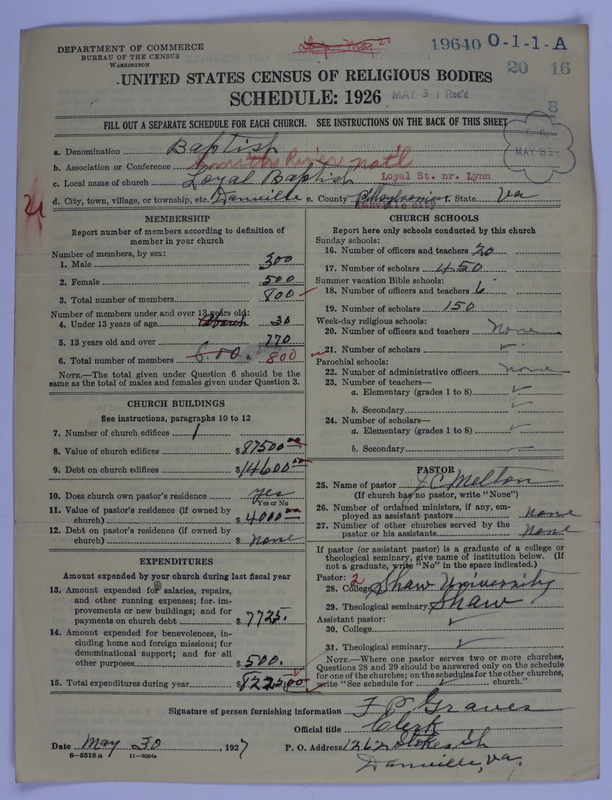 DEPARTMENT OF COMMERCE
BUREAU OF THE CENSUS
WASHINGTON
19640 O-1-1-A
20 16
8
UNITED STATES CENSUS OF RELIGIOUS BODIES
SCHEDULE: 1926
MAY 31 Rec'd
FILL OUT A SEPARATE SCHEDULE FOR EACH CHURCH. SEE INSTRUCTIONS ON THE BACK OF THIS SHEET
MAY 31
a. Denomination Baptist
b. Association or Conference River nat'l
c. Local name of church Loyal Baptist Loyal St. nr. Lynn
d. City, town, village, or township, etc. Danville e. County Pittsylvania f. State Va
Danville city
MEMBERSHIP
Report number of members according to definition of member in your church
Number of members, by sex:
1. Male 300
2. Female 500
3. Total number of members 800
Number of members under and over 13 years old:
4. Under 13 years of age 30
5. 13 years old and over 770
6. Total number of members 800
NOTE.—The total given under Question 6 should be the same as the total of males and females given under Question 3.
CHURCH BUILDINGS
See instructions, paragraphs 10 to 12
7. Number of church edifices 1
8. Value of church edifices $87500.00
9. Debt on church edifices $14600.00
10. Does church own pastor's residence yes
Yes or No
11. Value of pastor's residence (if owned by church) $4000.00
12. Debt on pastor's residence (if owned by church) $ none
EXPENDITURES
Amount expended by your church during last fiscal year
13. Amount expended for salaries, repairs, and other running expenses; for improvements or new buildings; and for payments on church debt $7725.
14. Amount expended for benevolences, including home and foreign missions; for denominational support; and for all other purposes $500.
15. Total expenditures during year $8225.00
CHURCH SCHOOLS
Report here only schools conducted by this church
Sunday schools:
16. Number of officers and teachers 20
17. Number of scholars 450
Summer vacation Bible schools:
18. Number of officers and teachers 6
19. Number of scholars 150
Week-day religious schools:
20. Number of officers and teachers None
21. Number of scholars
Parochial schools:
22. Number of administrative officers none
23. Number of teachers—
a. Elementary (grades 1 to 8)
b. Secondary
24. Number of scholars—
a. Elementary (grades 1 to 8)
b. Secondary
PASTOR
25. Name of pastor J C Melton
(If church has no pastor, write "None")
26. Number of ordained ministers, if any, employed as assistant pastors none
27. Number of other churches served by the pastor or his assistants none
If pastor (or assistant pastor) is a graduate of a college or theological seminary, give name of institution below. (If not a graduate, write "No" in the space indicated.)
Pastor: 2
28. College Shaw University
29. Theological seminary Shaw
Assistant pastor:
30. College
31. Theological seminary
NOTE.—Where one pastor serves two or more churches, Questions 28 and 29 should be answered only on the schedule for one of the churches; on the schedules for the other churches, write "See schedule for church."
Signature of person furnishing information F P Graves
Official title Clerk
Date May 30, 1927 P. O. Address 1262 Stokes St
8-5518a 11-9054a
Danville, Va.